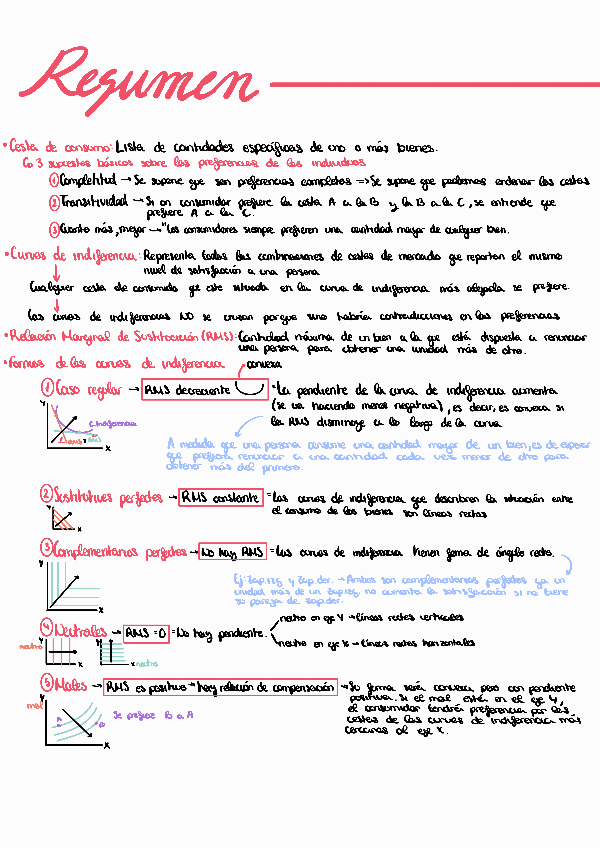 Resumen
• Cesta de consumo: Lista de cantidades específicas de uno o más bienes.
↳ 3 supuestos básicos sobre las preferencias de los individuos
① Completitud → Se supone que son preferencias completas => Se supone que podemos ordenar las cestas
② Transitividad → Si un consumidor prefiere la cesta A a la B y la B a la C, se entiende que
prefiere A a la C.
③ Cuanto más, mejor → "Los consumidores siempre prefieren una cantidad mayor de cualquier bien.
• Curvas de indiferencia: Representa todas las combinaciones de cestas de mercado que reportan el mismo
nivel de satisfacción a una persona
Cualquier cesta de consumido que este situada en la curva de indiferencia más alejada se prefiere.
Las curvas de indiferencias NO se cruzan porque sino habría contradicciones en las preferencias
• Relación Marginal de Sustitución (RMS): Cantidad máxima de un bien a la que está dispuesta a renunciar
una persona para obtener una unidad más de otro.
• Formas de las curvas de indiferencia
convexa
① Caso regular → RMS decreciente
• La pendiente de la curva de indiferencia aumenta
(se va haciendo menos negativa), es decir, es convexa si
la RMS disminuye a lo largo de la curva
Y
C. Indiferencia
RMS
RMS
X
A medida que una persona consume una cantidad mayor de un bien, es de esperar
que prefiera renunciar a una cantidad cada vez menor de otro para
obtener más del primero.
② Sustitutivos perfectos → RMS constante = Las curvas de indiferencia que describen la situación entre
el consumo de los bienes son líneas rectas
Y
X
③ Complementarios perfectos → No hay RMS = Las curvas de indiferencia tienen forma de ángulo recto.
Y
X
Ej: Zap. izq y Zap. der. → Ambos son complementarios perfectos ya un
unidad más de un Zap. izq no aumenta la satisfacción si no tiene
su pareja de Zap. der.
④ Neutrales → RMS = 0 = No hay pendiente.
neutro en eje Y → líneas rectas verticales
neutro en eje X → líneas rectas horizontales
Y
neutro
X
Y
X neutro
⑤ Males → RMS es positivo → hay relación de compensación → Su forma será convexa pero con pendiente
positiva. Si el mal está en el eje Y,
el consumidor tendrá preferencia por las
cestas de las curvas de indiferencia más
cercanas al eje X.
Y
mal
A
B
X
Se prefiere B a A